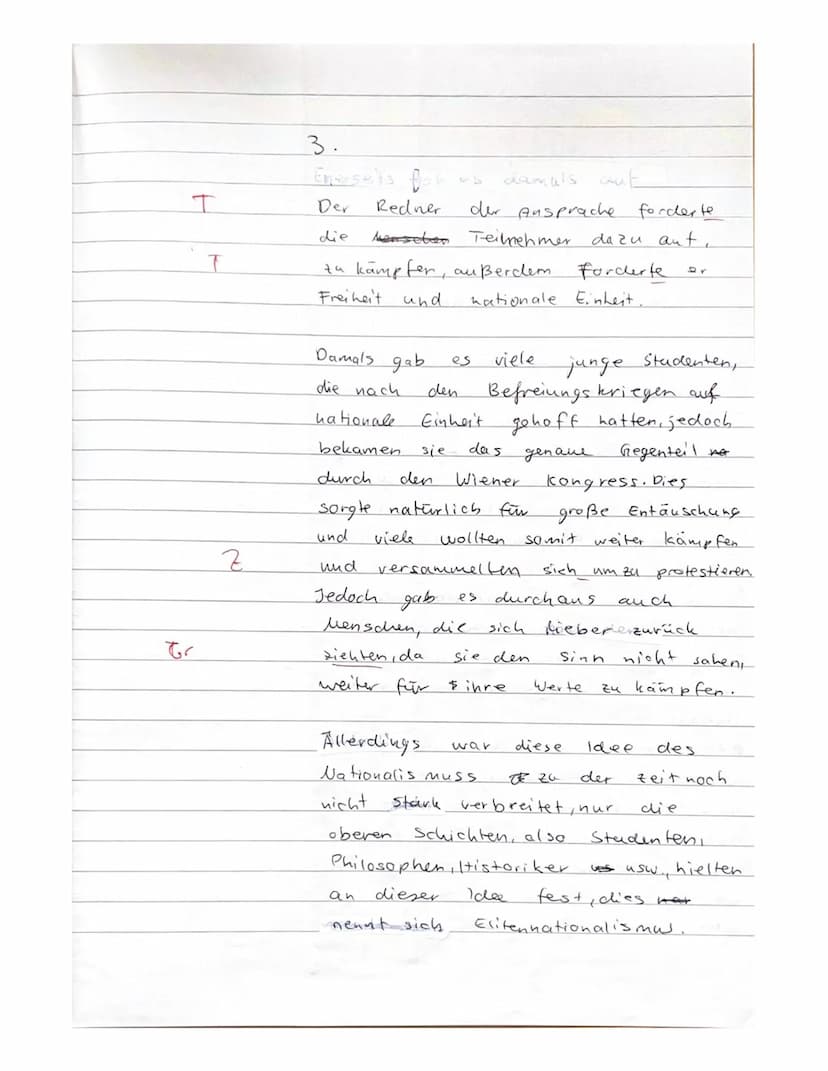 3.
es damals auf
T Der Redner der Ansprache forderte
die Menschen Teilnehmer dazu auf,
T zu kämpfer, außerdem forderte er
Freiheit und nationale Einheit.
Damals gab es viele junge Studenten,
die nach den Befreiungskriegen auf
nationale Einheit gehoff hatten, jedoch
bekamen sie das genaue Gegenteil
durch den Wiener Kongress. Dies
sorgte natürlich für große Entäuschung
und viele wollten somit weiter kämpfen
Z und versammelten sich um zu protestieren
Jedoch gab es durchaus auch
Menschen, die sich lieber zurück
Gr ziehten, da sie den Sinn nicht sahen,
weiter für ihre Werte zu kämpfen.
Allerdings war diese Idee des
Nationalismuss zu der Zeit noch
nicht stark verbreitet, nur die
oberen Schichten, also Studenten,
Philosophen, Historiker usw., hielten
an dieser Idee fest, dies
nennt sich Elitennationalismus.